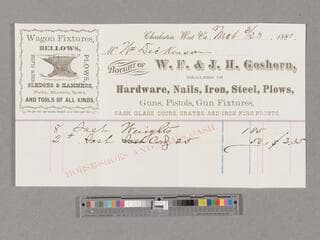 Wagon Fixtures,
BELLOWS,
SCREW PLATES,
PLOWS,
SLEDGES & HAMMERS,
AND TOOLS OF ALL KINDS.
Charleston, West Va. 188
Mr Wm Dickinson
BOUGHT OF W. F. & J. H. Goshorn,
DEALERS IN
Hardware, Nails, Iron, Steel, Plows,
Guns, Pistols, Gun Fixtures,
SASH, GLASS, DOORS, GRATES, AND IRON FIRE FRONTS.
8 Sash Weights 185
2 Sash Cord 25 50 $ 2.35
HORSESHOES AND NAILS CASH